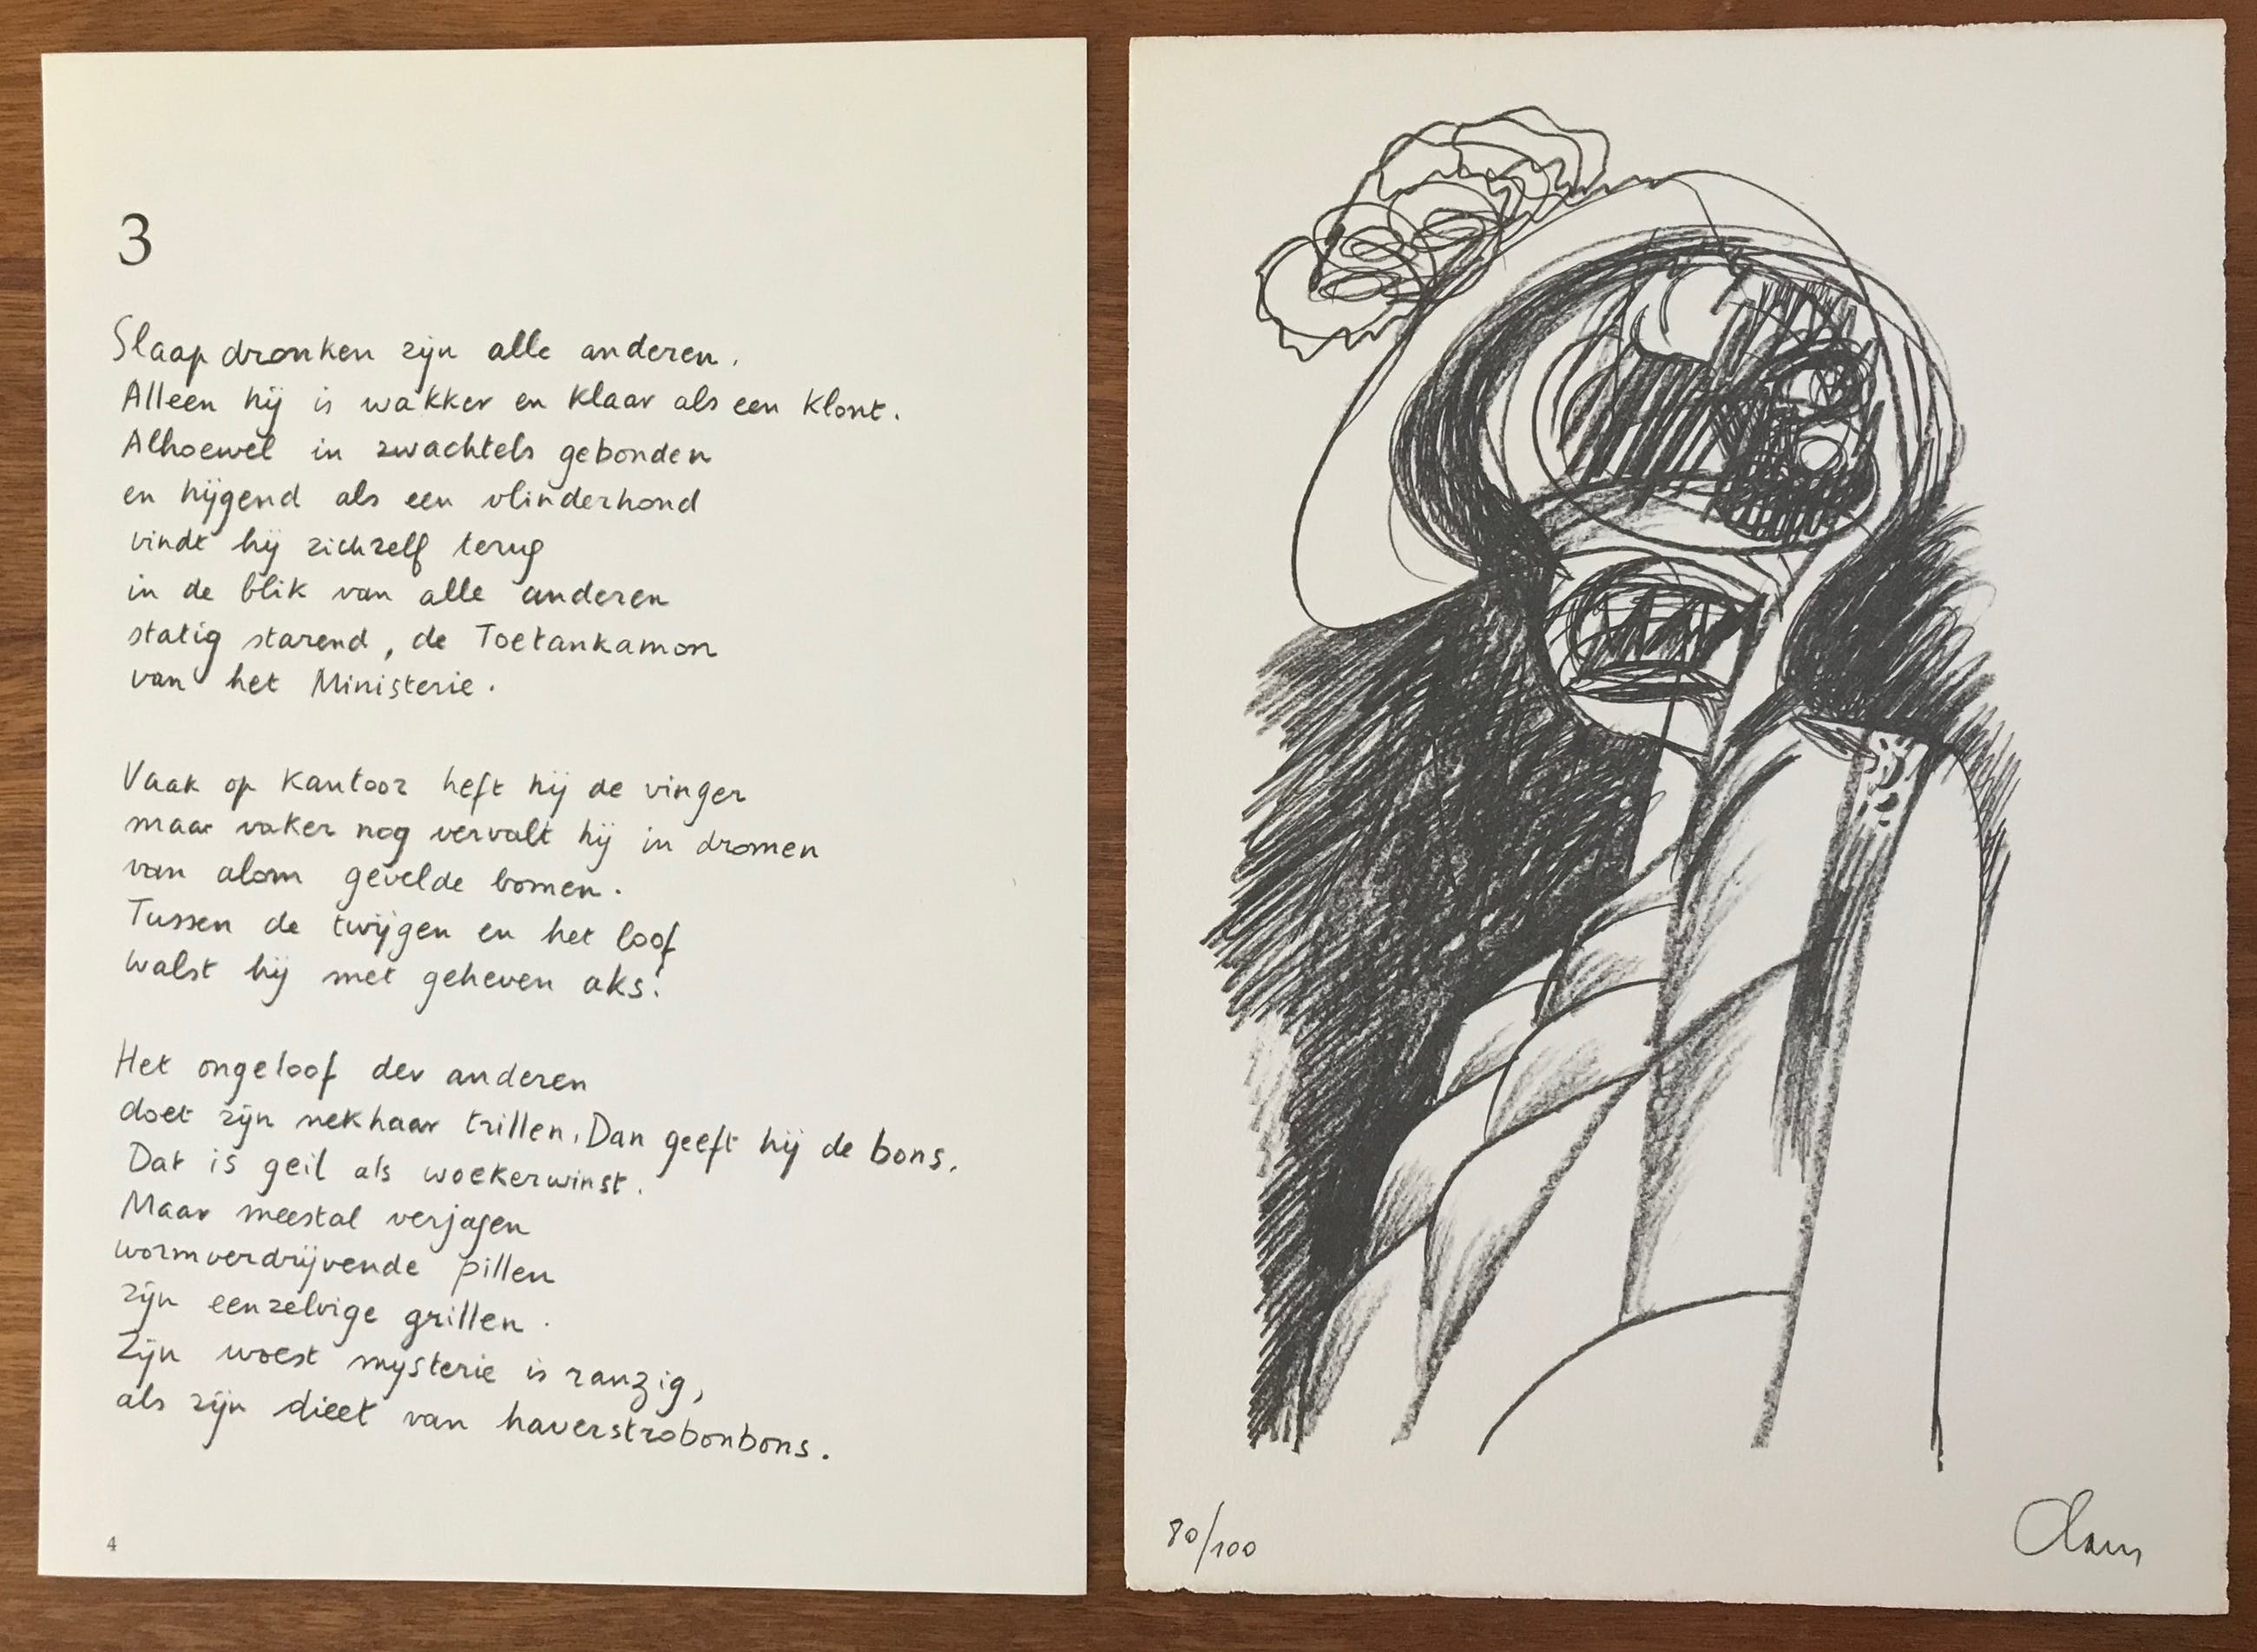 3
Slaapdronken zijn alle anderen.
Alleen hij is wakker en klaar als een klont.
Alhoewel in zwachtels gebonden
en hijgend als een vlinderhond
vindt hij zichzelf terug
in de blik van alle anderen
statig starend, de Toetankamon
van het Ministerie.
Vaak op kantoor heft hij de vinger
maar vaker nog vervalt hij in dromen
van alom gevelde bomen.
Tussen de twijgen en het loof
walst hij met geheven aks.
Het ongeloof der anderen
doet zijn nekhaar trillen. Dan geeft hij de bons.
Dat is geil als woekerwinst.
Maar meestal verjagen
wormverdrijvende pillen
zijn eenzelvige grillen.
Zijn woest mysterie is ranzig,
als zijn dieet van haverstrobonbons.
4
80/100
Claus